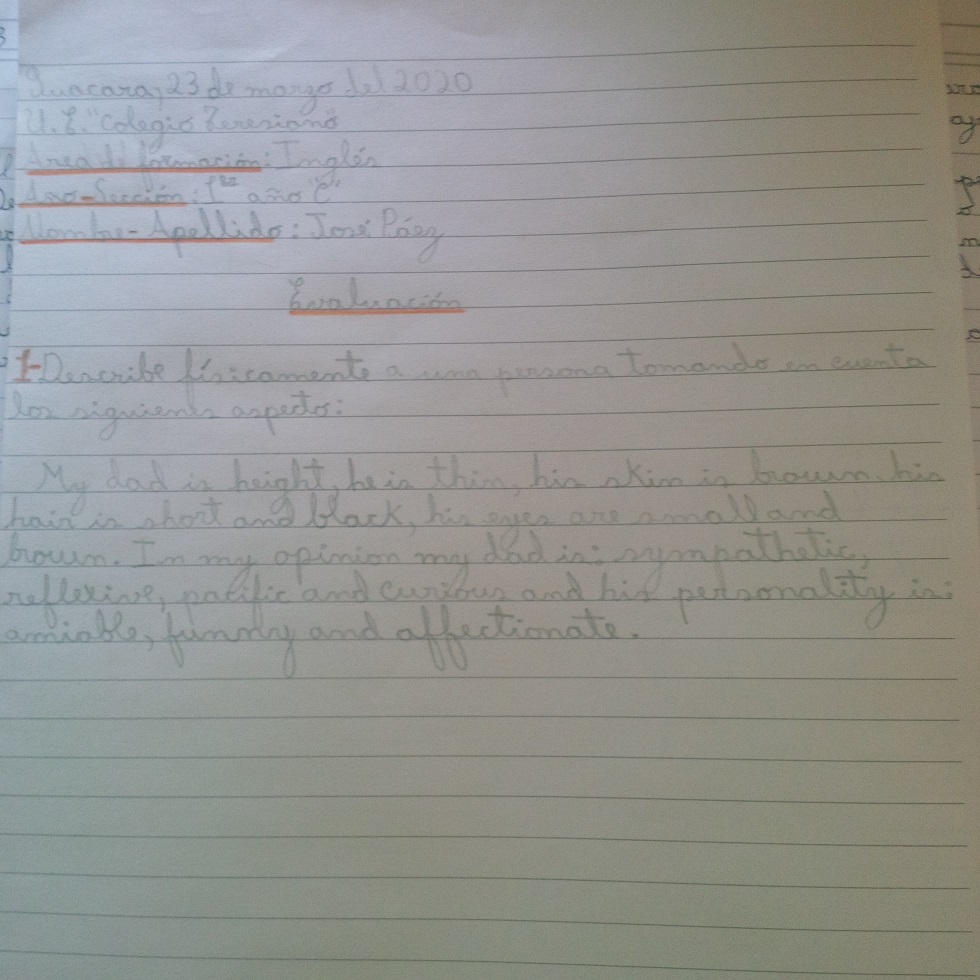 Guacara, 23 de marzo del 2020
U.E. "Colegio Teresiano"
Area de formación: Inglés
Ano-Sección: 1er año "C"
Nombre-Apellido: José Páez
Evaluación
1-Describe físicamente a una persona tomando en cuenta
los siguients aspecto:
My dad is height, he is thin, his skin is brown. his
hair is short and black, his eyes are small and
brown. In my opinion my dad is: sympathetic,
reflexive, pacific and curious and his personality is:
amiable, funny and affectionate.